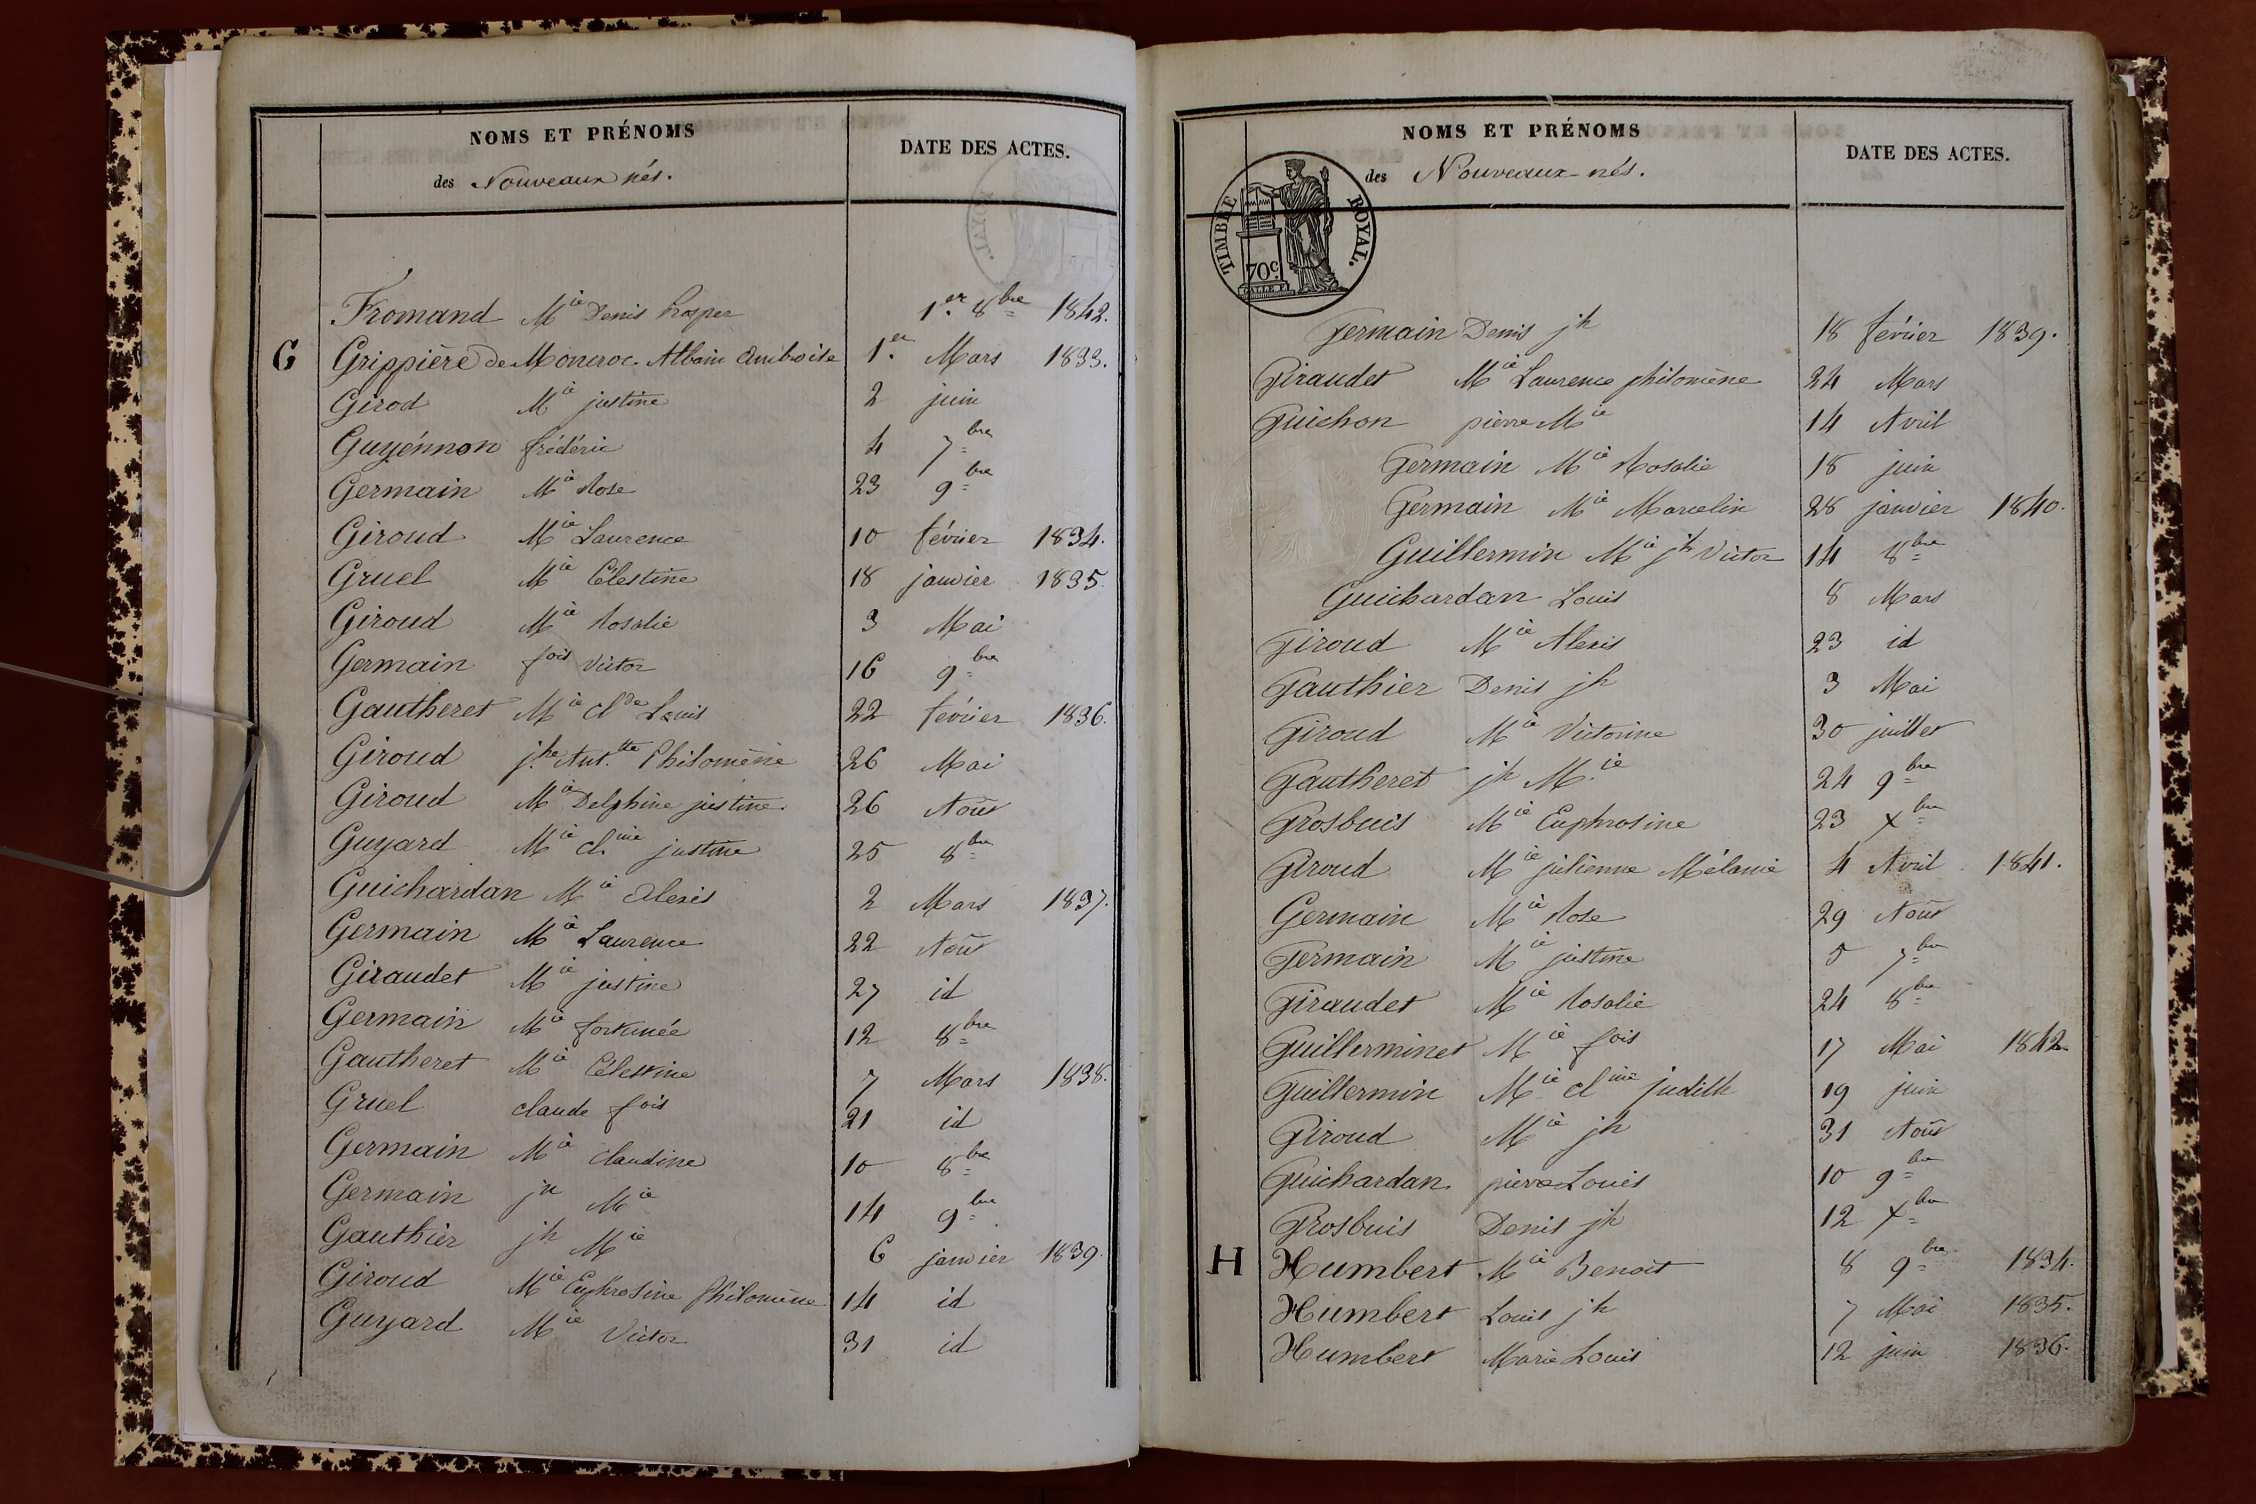 NOMS ET PRÉNOMS
des Nouveaux nés.
DATE DES ACTES.
Fromand Mie Denis Prosper 1er. 8bre 1842.
G Grippière de Moncroc Albain Amboise 1er. Mars 1833.
Girod Mie justine 2 juin
Guyénnon frédéric 4 7bre
Germain Mie Rose 23 9bre
Giroud Mie Laurence 10 février 1834.
Gruel Mie Célestine 18 janvier 1835.
Giroud Mie Rosalie 3 Mai
Germain fois Victor 16 9bre
Gautheret Mie Clde Louis 22 février 1836.
Giroud jhe Ant.tte Philomène 26 Mai
Giroud Mie Delphine justine. 26 Août
Guyard Mie Cl.ine justine 25 8bre
Guichardan Mie Alexis 2 Mars 1837.
Germain Mie Laurence 22 Août
Giraudet Mie justine 27 id
Germain Mie fortunée 12 8bre
Gautheret Mie Célestine 7 Mars 1838.
Gruel claude fois 21 id
Germain Mie claudine 10 8bre
Germain jh Mie 14 9bre
Gauthier jh Mie 6 janvier 1839.
Giroud Mie Euphrosine Philomène 14 id
Guyard Mie Victor 31 id
NOMS ET PRÉNOMS
des Nouveaux-nés.
DATE DES ACTES.
TIMBRE ROYAL.
70c.
Germain Denis jh 18 février 1839.
Giraudet Mie Laurence philomène 24 Mars
Guichon pierre Mie 14 Avril
Germain Mie Rosalie 18 juin
Germain Mie Marcelin 28 janvier 1840.
Guillermin Mie jh Victor 14 8bre
Guichardan Louis 8 Mars
Giroud Mie Alexis 23 id
Gauthier Denis jh 3 Mai
Giroud Mie Victorine 30 juillet
Gautheret jh M.ie 24 9bre
Grosbuis Mie Euphrosine 23 Xbre
Giroud Mie julienne Mélanie 4 Avril 1841.
Germain Mie Rose 29 Août
Germain Mie justine 5 7bre
Giraudet Mie Rosalie 24 8bre
Guillerminet Mie fois 17 Mai 1842
Guillermin Mie Cline judith 19 juin
Giroud Mie jh 31 Août
Guichardan pierre Louis 10 9bre
Grosbuis Denis jh 12 Xbre
H Humbert Mie Benoit 8 9bre 1834.
Humbert Louis jh 7 Mai 1835.
Humbert Marie Louis 12 juin 1836.